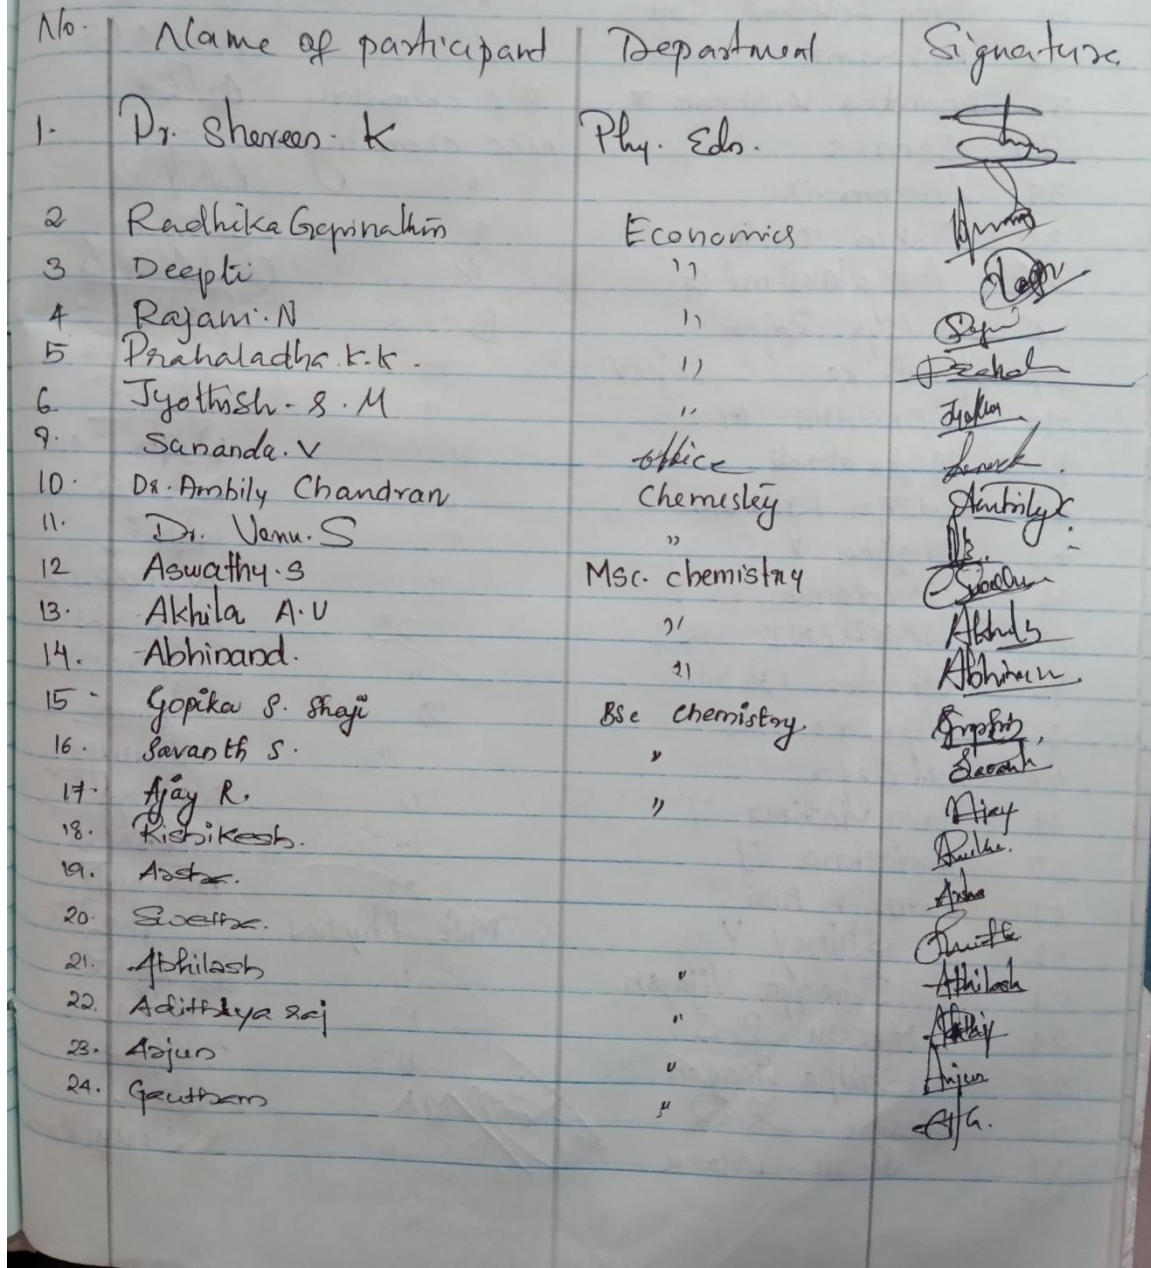 No. Name of participant Department Signature
1. Dr. Shereen. K Phy. Edn.
2 Radhika Gopinathan Economics
3 Deepti ,,
4 Rajani. N ,,
5 Prahaladha. K.K. ,, Prahal
6 Jyothish. S. M ,, Jyothis
9. Sananda. V office
10. Dr. Ambily Chandran Chemistry Ambily C
11. Dr. Venu. S ,,
12 Aswathy. S MSc. chemistry
13. Akhila A. U ,, Akhila
14. Abhinand. ,,
15 - Gopika S. Shaji BSc Chemistry.
16. Savanth S. ,, Savanth
17. Ajay R. ,, Ajay
18. Rishikesh.
19. Asha
20. Swetha.
21. Abhilash " Abhilash
22. Adithya raj "
23. Arjun " Arjun
24. Gautham "